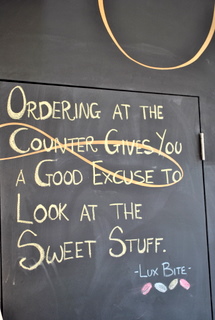 ORDERING AT THE
COUNTER GIVES YOU
A GOOD EXCUSE TO
LOOK AT THE
SWEET STUFF.
-LUX BITE-